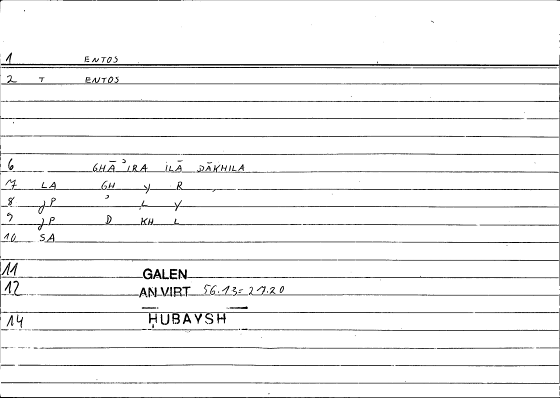 1 ENTOS
2 T ENTOS
6 GHĀʾIRA ILĀ DĀKHILA
7 LA GH Y R
8 JP ʾ L Y
9 JP D KH L
10 SA
11 GALEN
12 AN.VIRT 56.13= 27.20
14 ḤUBAYSH